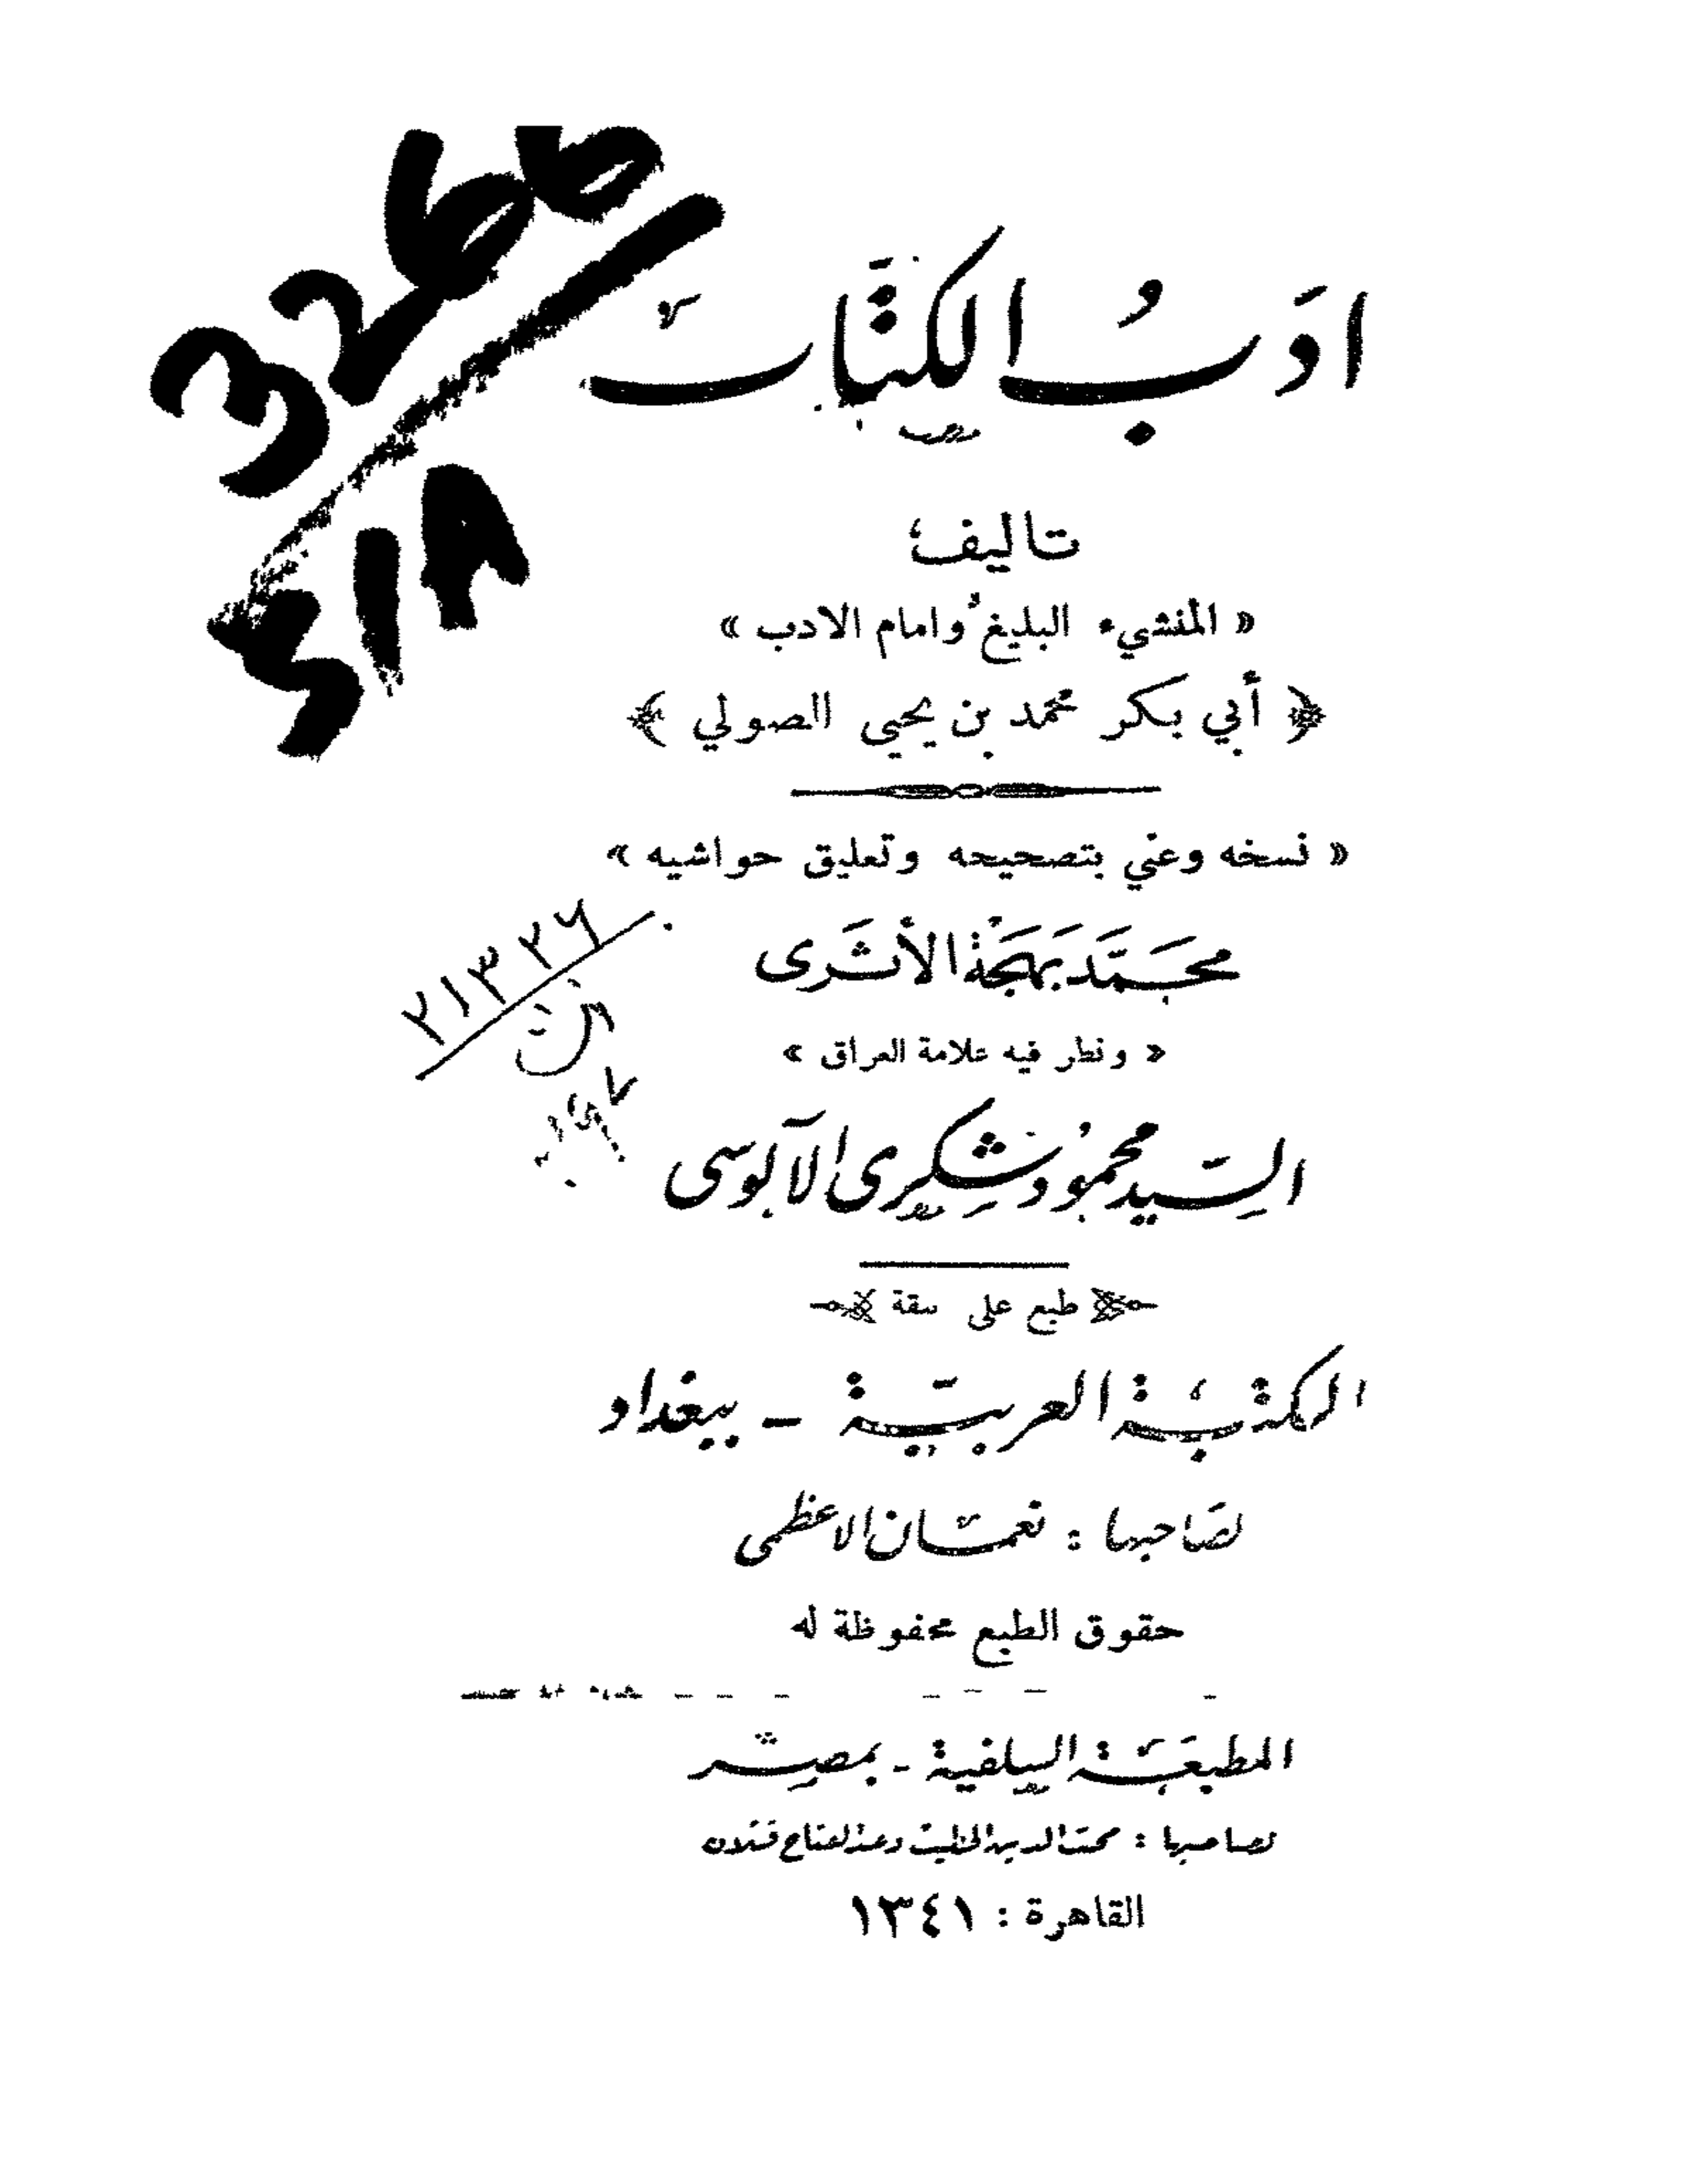 ادَبُ الكتَّاب
تاليف
« المنشيء البليغ وامام الادب »
﴿ أبي بكر محمد بن يحيى الصولي ﴾
« نسخه وعني بتصحيحه وتعليق حواشيه »
محمَّد بَهجَة الأثَرى
« ونظر فيه علامة العراق »
السيّد محمُود شِكرى الآلوسى
طبع على نفقة
المكتبة العربيّة - ببغداد
لصَاحبها : نعمان الاعظمى
حقوق الطبع محفوظة له
المطبعَة السلفية - بمصر
لصاحبيها : محب الدين الخطيب وعبد الفتاح قتلان
القاهرة : ١٣٤١
3266
SIA
٢١٣٢٦